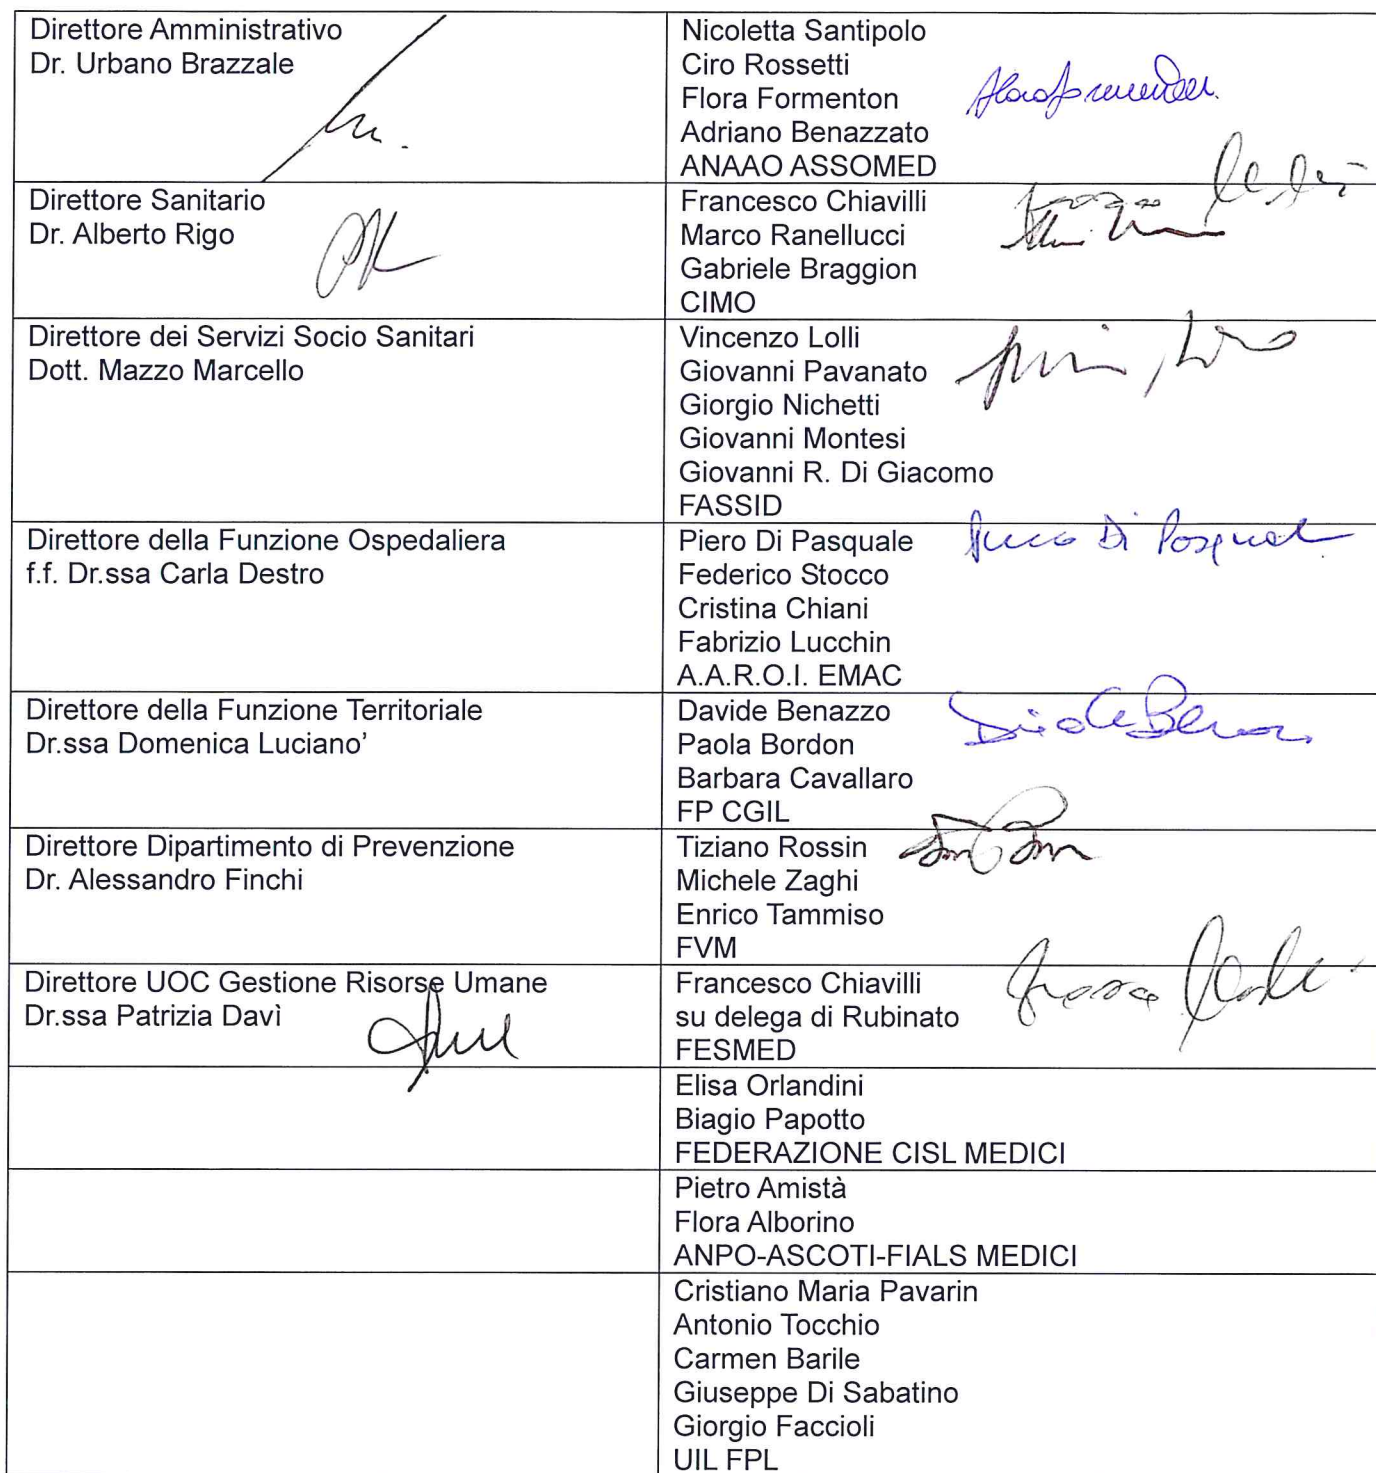 Direttore Amministrativo
Dr. Urbano Brazzale
Nicoletta Santipolo
Ciro Rossetti
Flora Formenton
Adriano Benazzato
ANAAO ASSOMED
Direttore Sanitario
Dr. Alberto Rigo
Francesco Chiavilli
Marco Ranellucci
Gabriele Braggion
CIMO
Direttore dei Servizi Socio Sanitari
Dott. Mazzo Marcello
Vincenzo Lolli
Giovanni Pavanato
Giorgio Nichetti
Giovanni Montesi
Giovanni R. Di Giacomo
FASSID
Direttore della Funzione Ospedaliera
f.f. Dr.ssa Carla Destro
Piero Di Pasquale
Federico Stocco
Cristina Chiani
Fabrizio Lucchin
A.A.R.O.I. EMAC
Direttore della Funzione Territoriale
Dr.ssa Domenica Luciano’
Davide Benazzo
Paola Bordon
Barbara Cavallaro
FP CGIL
Direttore Dipartimento di Prevenzione
Dr. Alessandro Finchi
Tiziano Rossin
Michele Zaghi
Enrico Tammiso
FVM
Direttore UOC Gestione Risorse Umane
Dr.ssa Patrizia Davì
Francesco Chiavilli
su delega di Rubinato
FESMED
Elisa Orlandini
Biagio Papotto
FEDERAZIONE CISL MEDICI
Pietro Amistà
Flora Alborino
ANPO-ASCOTI-FIALS MEDICI
Cristiano Maria Pavarin
Antonio Tocchio
Carmen Barile
Giuseppe Di Sabatino
Giorgio Faccioli
UIL FPL